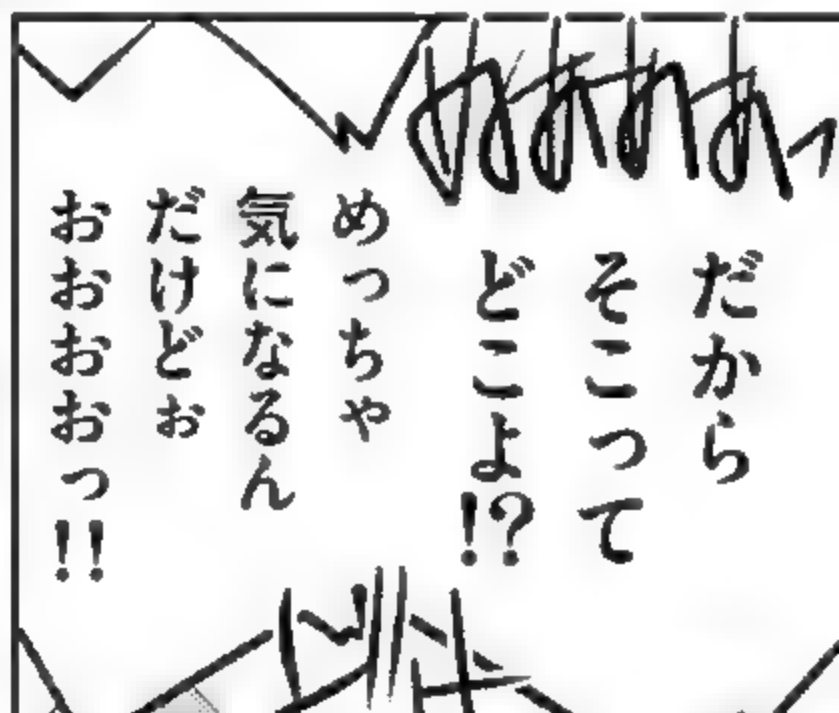 だから
そこって
どこよ!?
めっちゃ
気になるん
だけどぉ
おおおおっ!!